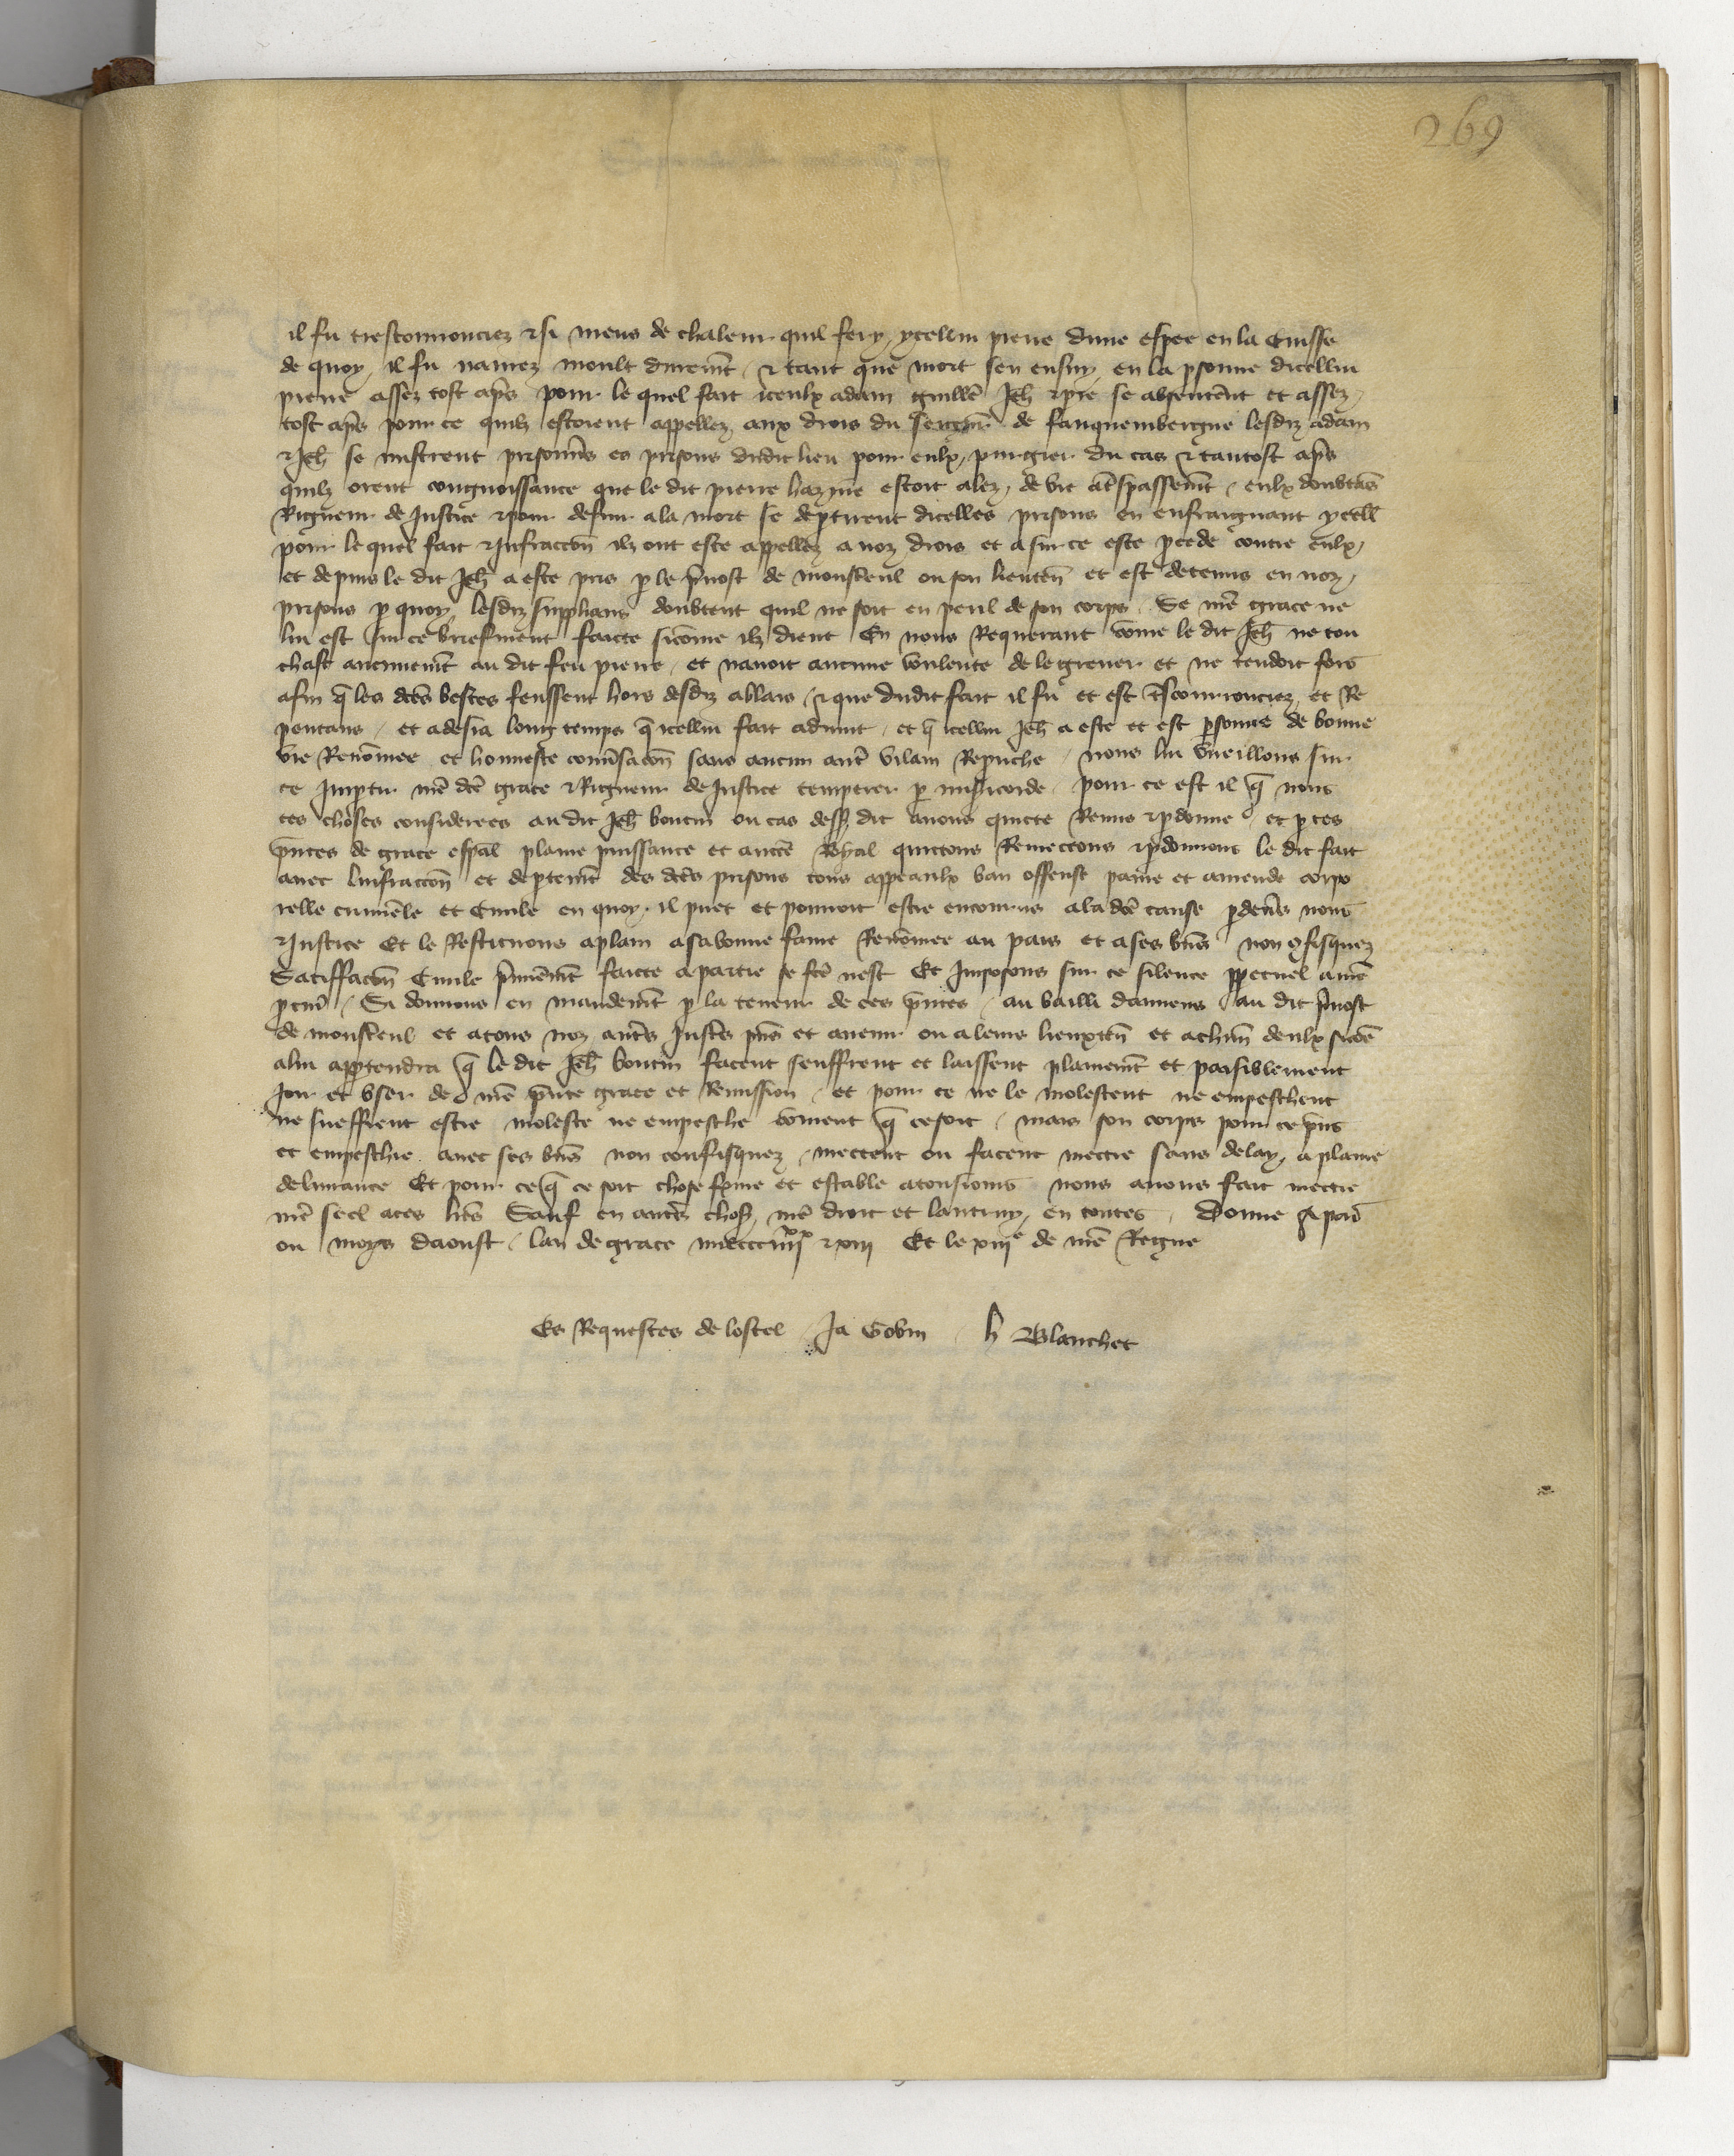 269
il fu trescourrouciez & si meus de chaleur quil fery ycelui pierre dune espee en la Cuisse
de quoy il fu navrez moult durem̃t & tant que mort sen ensuy en la p̱sonne dicellui
pierre assez tost ap̃s pour le quel fait iceulx adam guill̃e Jeh̃ & p̃re se absentẽnt et assez
tost ap̃s pour ce quilz estoient appellez aux drois du seign̄r de fauquemberguе lesdiz adam
& Jeh̃ se mistrent prisonñs es prisons dudit lieu pour eulx purgier du cas & tantost ap̃s
quilz orent congnoissance que le dit pierre estoit alez de vie a t̃spassem̃t eulx doubtãs
Rigueur de Justice & pour defuir a la mort se dep̱tirent dicelles prisons en enfraignant ycell̃
pour lequel fait & Infraccoñ ilz ont este appellez a noz drois et a sur ce este p̱cede contre eulx
et depuis le dit Jeh̃ a este pris p̱ le p̃vost de monst̃eul ou son lieuteñ et est detenus en noz
prisons p̱ quoy lesdiz supplians doubtent quil ne soit en peril de son corps Se nr̃e grace ne
lui est sur ce briefment faicte sicõme ilz dient En nous Requerant cõme le dit Jeh̃ ne tou
chast aucunem̃t au dit feu pierre et navoit aucune voulente de le grever et ne tendoit fors
afin q̃ les dc̃es bestes feussent hors desdiz ablais & que dudit fait il fu et est t̃scourrouciez et Re
pentans et a desia long temps q̃ icellui fait advint et q̃ icellui Jeh̃ a este et est p̱sonne de bonne
vie Renõmee et honneste conṽsacoñ sans aucun aut̃ vilain Reprũche nous lui vueillons sur
ce Imp̱tir nr̃e dc̃e grace & Rigueur de Justice temperer p̱ mis̃icorde pour ce est il q̃ nous
ces choses considerees au dit Jeh̃ boutin ou cas dess̃ dit avons quicte Remis & p̱donne et p̱ ces
p̃ntes de grace esp̃al plaine puissance et auct̃e Royal quictons Remectons & p̱donnons le dit fait
avec linfraccoñ et dep̱tem̃t des dc̃es prisons tous appeaulx ban offense paine et amende corpo
relle crimiñele et Civile en quoy il puet et pourroit estre encourus a la dc̃e cause p̱ deṽs nous
& Justice Et le Restituons a plain a sa bonne fame Renõmee au pais et a ses bñs non ꝯfisquez
Satiffacoñ Civile p̃mierem̃t faicte a partie se fc̃e nest Et Imposons sur ce silence p̱petuel a nr̃e
p̱cur̃ Si donnons en mandem̃t p̱ la teneur de ces p̃ntes au bailli damiens au dit p̃vost
de monst̃eul et a tous noz aut̃s Justic̃s p̃ns et avenir ou a leurs lieuxteñ et a chũn deulx sicõe
a lui app̱tendra q̃ le dit Jeh̃ boutin facent seuffrent et laissent plainem̃t et paisiblement
Joir et user de nr̃e p̃nte grace et Remission et pour ce ne le molestent ne empeschent
ne sueffrent estre moleste ne empesche cõment q̃ ce soit mais son corps pour ce pris
et empeschie avec ses bñs non confisquez mectent ou facent mectre sans delay a plaine
delivrance Et pour ce q̃ ce soit chose ferme et estable a tousiours nous avons fait mectre
nr̃e seel a ces lr̃es Sauf en aut̃s chos̃ nr̃e droit et lautruy en toutes Donne a paris
ou moys daoust lan de grace mil ccc iiiixx & xiii Et le xiiie de nr̃e Regne
Es Requestes de lostel Ja Gobin h Blanchet